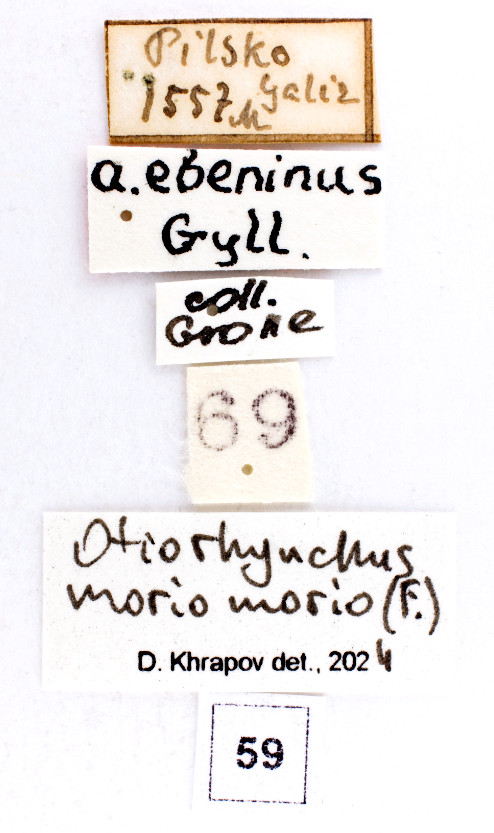 Pilsko
1557 M Galiz
a. ebeninus
Gyll.
coll.
Grone
69
Otiorhynchus
morio morio (F.)
D. Khrapov det., 2024
59